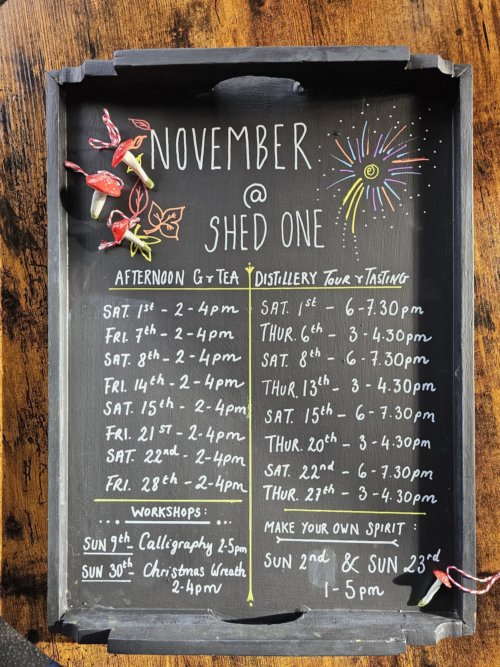 NOVEMBER
@
SHED ONE
AFTERNOON G & TEA
SAT. 1st - 2-4pm
FRI. 7th - 2-4pm
SAT. 8th - 2-4pm
FRI. 14th - 2-4pm
SAT. 15th - 2-4pm
FRI. 21ST - 2-4pm
SAT. 22nd - 2-4pm
FRI. 28th - 2-4pm
WORKSHOPS:
SUN 9th - Calligraphy 2-5pm
SUN 30th - Christmas Wreath
2-4pm
DISTILLERY TOUR & TASTING
SAT. 1st - 6-7.30pm
THUR. 6th - 3-4.30pm
SAT. 8th - 6-7.30pm
THUR. 13th - 3-4.30pm
SAT. 15th - 6-7.30pm
THUR. 20th - 3-4.30pm
SAT. 22nd - 6-7.30pm
THUR. 27th - 3-4.30pm
MAKE YOUR OWN SPIRIT:
SUN 2nd & SUN 23rd
1-5pm